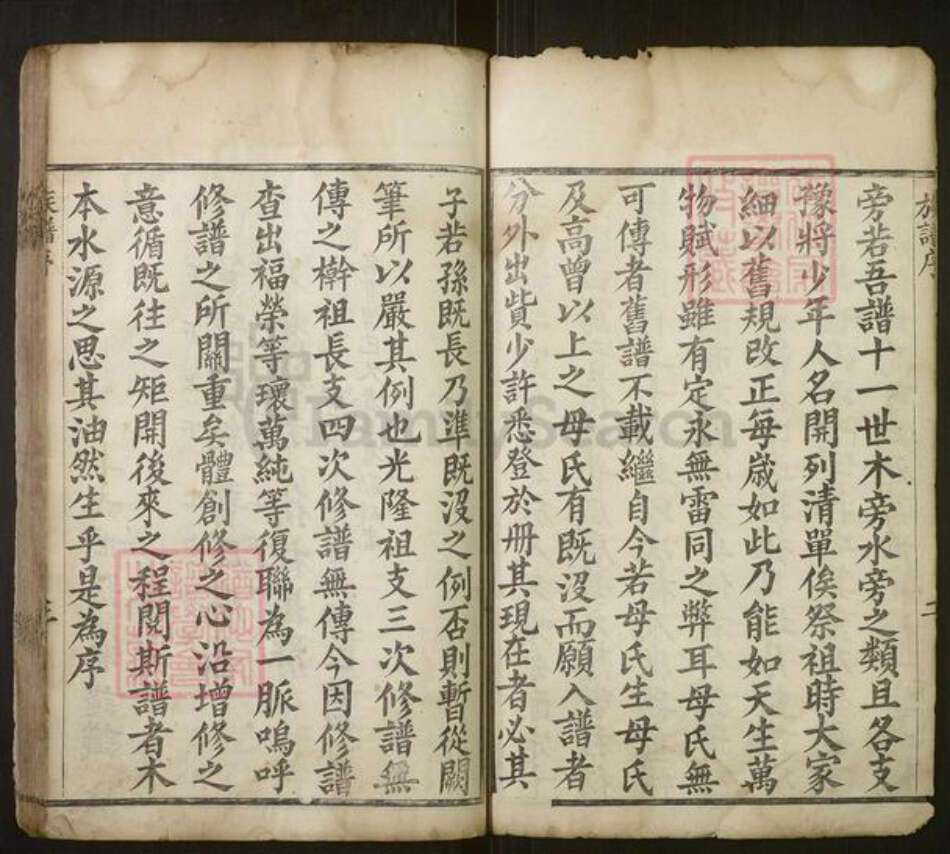 族譜序
旁若吾譜十一世木旁水旁之類且各支
豫將少年人名開列清單俟祭祖時大家
細以舊規改正每歲如此乃能如天生萬
物賦形雖有定永無雷同之弊耳母氏無
可傳者舊譜不載繼自今若母氏生母氏
及高曾以上之母氏有既沒而願入譜者
分外出貲少許悉登於冊其現在者必其
子若孫既長乃準既沒之例否則暫從闕
筆所以嚴其例也光隆祖支三次修譜無
傳之幹祖長支四次修譜無傳今因修譜
查出福榮等瓌萬純等復聯為一脈嗚呼
修譜之所關重矣體創修之心沿增修之
意循既往之矩開後來之程閱斯譜者木
本水源之思其油然生乎是為序
族譜序
FamilySearch